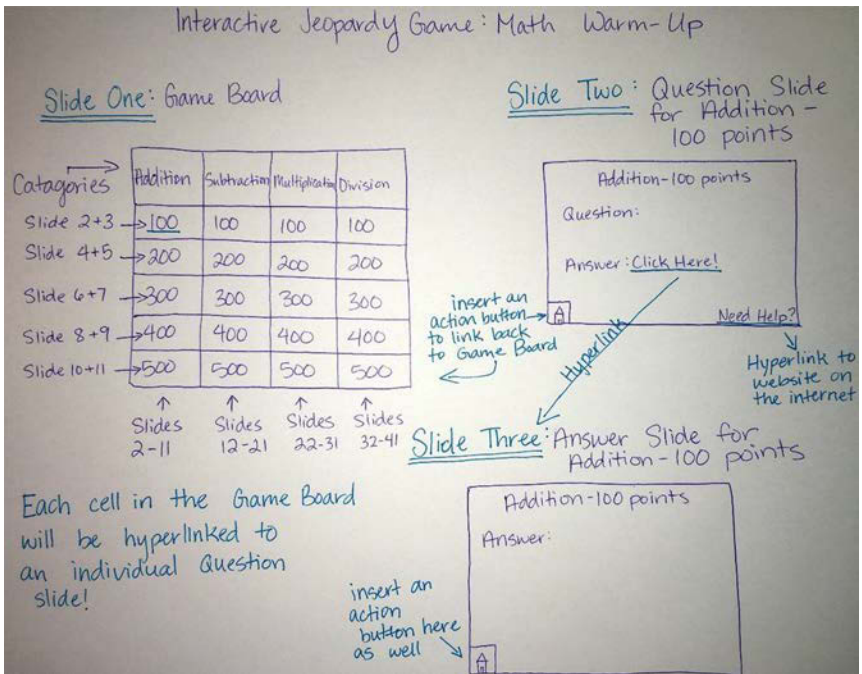 Interactive Jeopardy Game: Math Warm-Up
Slide One: Game Board
Catagories
Addition Subtraction Multiplication Division
Slide 2+3 100 100 100 100
Slide 4+5 200 200 200 200
Slide 6+7 300 300 300 300
Slide 8+9 400 400 400 400
Slide 10+11 500 500 500 500
Slides Slides Slides Slides
2-11 12-21 22-31 32-41
Each cell in the Game Board
will be hyperlinked to
an individual Question
slide!
Slide Two: Question Slide
for Addition -
100 points
Addition-100 points
Question:
Answer: Click Here!
Need Help?
insert an
action button
to link back
to Game Board
Hyperlink
Hyperlink to
website on
the internet
Slide Three: Answer Slide for
Addition-100 points
Addition-100 points
Answer:
insert an
action
button here
as well